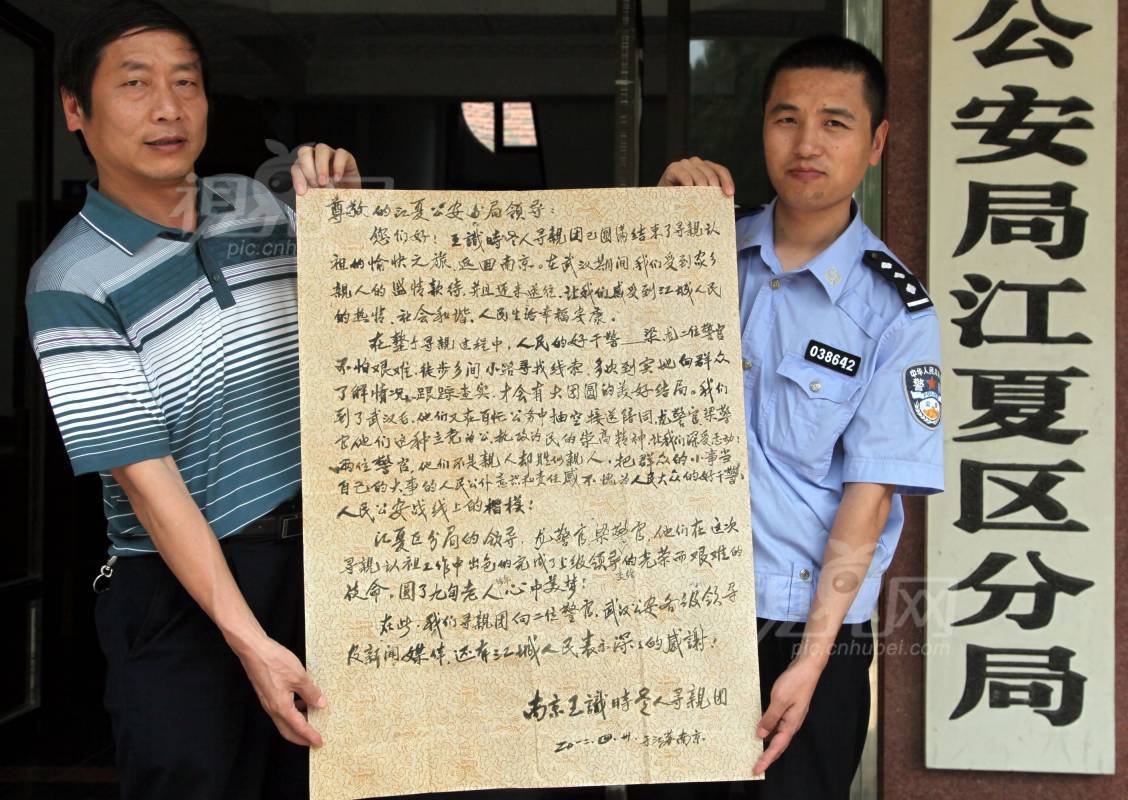 尊敬的江夏公安分局领导：
您们好！王識時老人寻親团已圆满结束了寻親认
祖的愉快之旅，返回南京。在武汉期间我们受到家乡
親人的盛情款待，并且迎来送往，让我们感受到江城人民
的热情、社会和谐、人民生活幸福安康。
在整个寻親过程中，人民的好干警——梁、尤二位警官
不怕艰难，徒步乡间小路寻找线索，多次到实地向群众
了解情况，跟踪查实，才会有大团圆的美好结局。我们
到了武汉后，他们又在百忙公务中抽空接送陪同，尤警官梁警
官他们这种立党为公执政为民的崇高精神让我们深受感动！
两位警官，他们不是親人却胜似親人，把群众的小事当
自己的大事的人民公仆意识和责任感不愧为人民大众的好干警，
人民公安战线上的楷模！
江夏区分局的领导，尤警官，梁警官，他们在这次
寻親认祖工作中出色的完成了上级领导的光荣而艰难的
使命，圆了九旬老人心中美梦！
在此，我们寻親团向二位警官，武汉公安各级领导
及新闻媒体，还有江城人民表示深深的感謝！
南京王識時老人寻親团
二0一二.四.廿.于江苏南京
公安局江夏区分局
038642
中华人民共和国
警
pic.cnhubei.com
pic.cnhubei.com